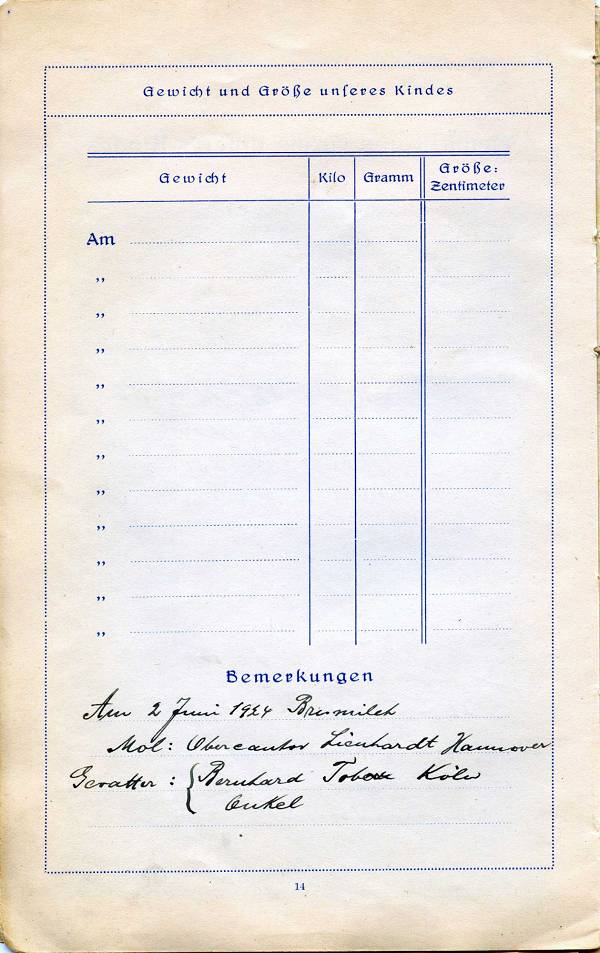 Gewicht und Größe unseres Kindes
Gewicht Kilo Gramm Größe: Zentimeter
Am
„
„
„
„
„
„
„
„
„
„
„
Bemerkungen
Am 2 Juni 1924 Brismilch
Mol: Obercantor Lienhardt Hannover
Gevatter: Bernhard Köln
Onkel
14